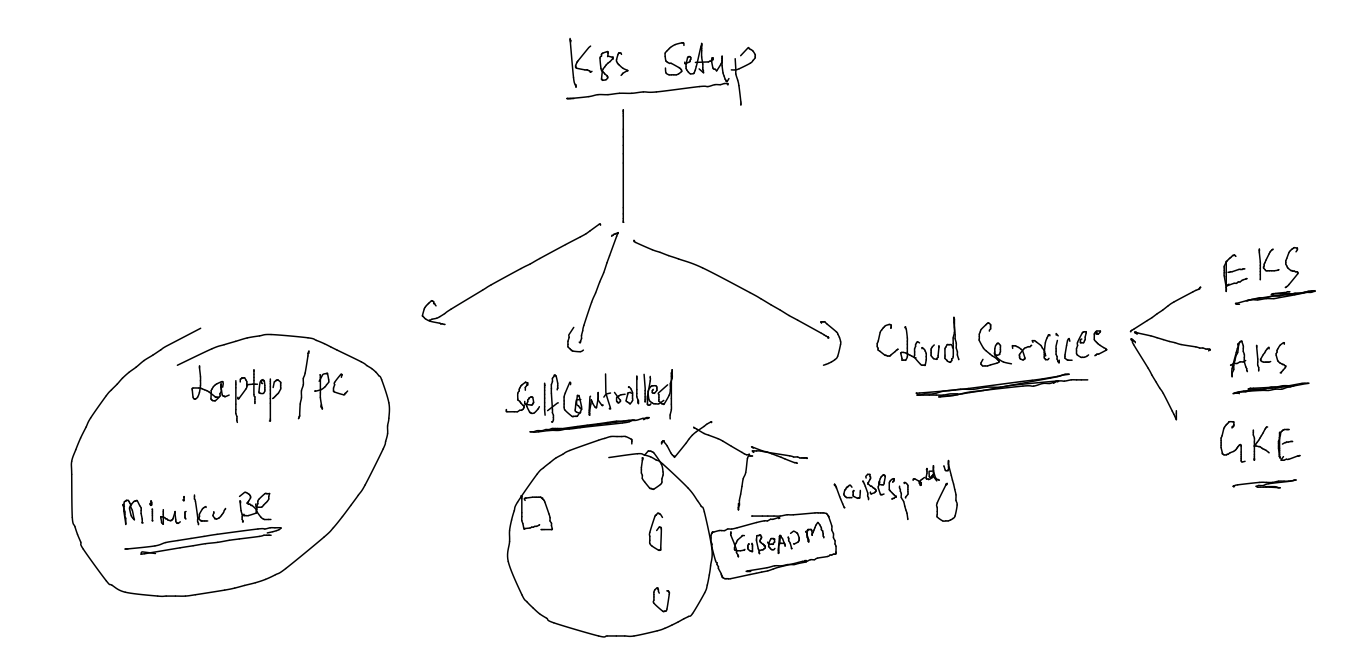 K8S Setup
Laptop/PC
MiNikuBe
Self Controlled
KuBeADM
KuBespray
Cloud Services
EKS
AKS
GKE